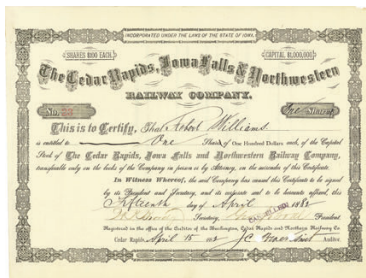 INCORPORATED UNDER THE LAWS OF THE STATE OF IOWA.
SHARES $100 EACH.
CAPITAL $1,000,000
The Cedar Rapids, Iowa Falls & Northwestern
RAILWAY COMPANY.
No.
One Shares
This is to Certify, That Robert Williams
is entitled to One Share of One Hundred Dollars each, of the Capital
Stock of The Cedar Rapids, Iowa Falls and Northwestern Railway Company,
transferable only on the books of the Company in person or by Attorney, on the surrender of this Certificate.
In Witness Whereof, the said Company has caused this Certificate to be signed
by its President and Secretary, and its corporate seal to be hereunto affixed, this
Fifteenth day of April 1882
Secretary. President
Registered in the office of the Auditor of the Burlington, Cedar Rapids and Northern Railway Co.
Cedar Rapids, April 15 1882 J.C. Auditor